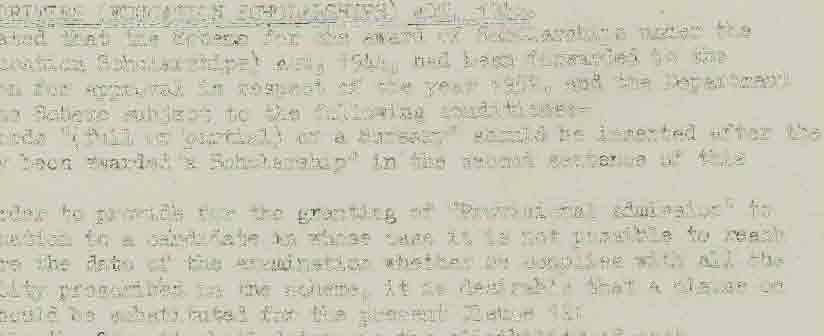 (EDUCATION SCHOLARSHIPS) ACT, 1944.
ated that the Scheme for the award of Scholarships under the
ucation Scholarships) Act, 1944, had been forwarded to the
on for approval in respect of the year 19 , and the Department
he Scheme subject to the following conditions:-
ords "(full or partial) or a Bursary" should be inserted after the
y been awarded a Scholarship" in the second sentence of this
rder to provide for the granting of "Provisional admission" to
nation to a candidate in whose case it is not possible to reach
re the date of the examination whether he complies with all the
lity prescribed in the scheme, it is desirable that a clause on
hould be substituted for the present Clause